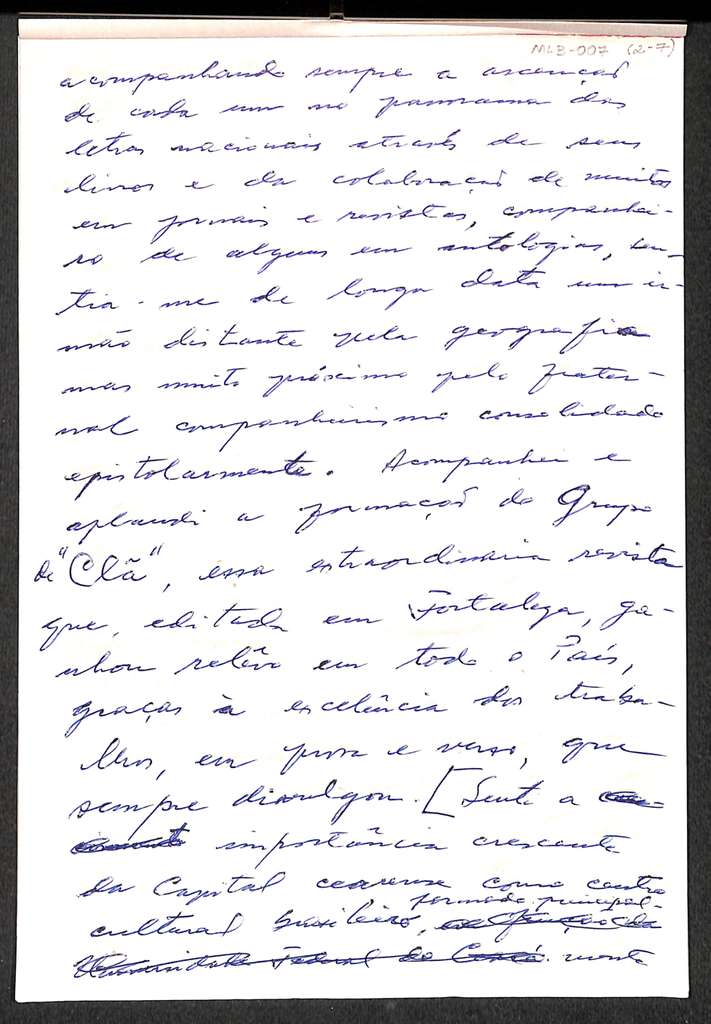 MLB-007 (2-7)
acompanhando sempre a ascenção
de cada um no panorama das
letras nacionais através de seus
livros e da colaboração de muitos
em jornais e revistas, companhei-
ro de alguns em antologias, sen-
tia-me de longa data um ir-
mão distante pela geografia
mas muito próximo pelo frater-
nal companheirismo consolidado
epistolarmente. Acompanhei e
aplaudi a formação do Grupo
de "Clã", essa extraordinária revista
que, editada em Fortaleza, ga-
nhou relêvo em todo o País,
graças à excelência dos traba-
lhos, em prosa e verso, que
sempre divulgou. [Senti a
importância crescente
da Capital cearense como centro
formado principal-
cultural brasileiro, da
Universidade Federal do Ceará mente